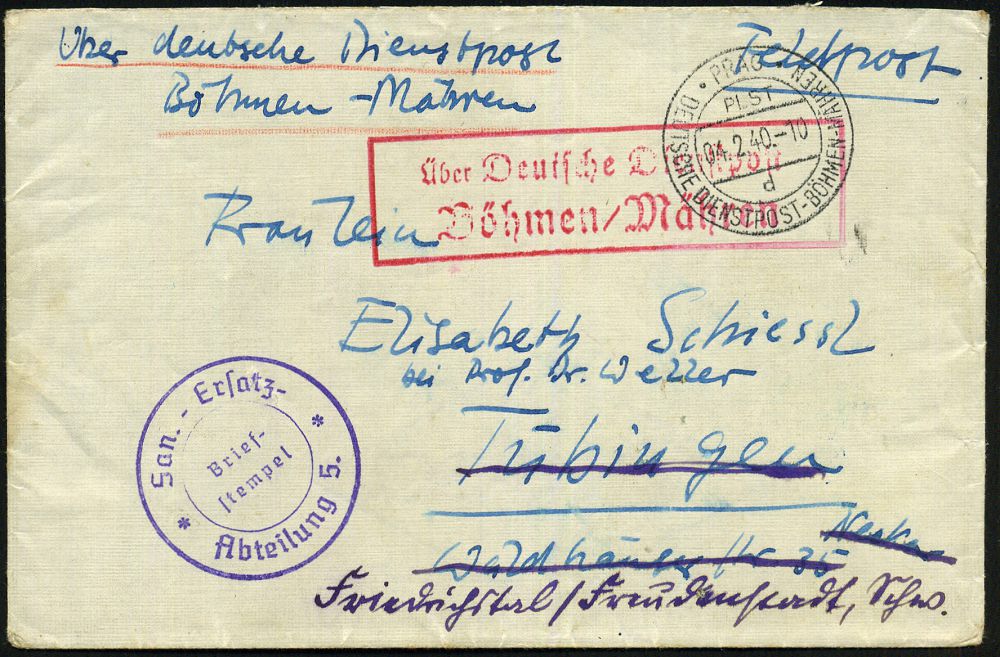 Über deutsche Dienstpost
Böhmen-Mähren
Feldpost
PRAG
PLST
04.2.40.-10
d
DEUTSCHE DIENSTPOST-BÖHMEN-MÄHREN
Über Deutsche Dienstpost
Böhmen/Mähren
Fräulein
Elisabeth Schiessl
bei Prof. Dr. Weller
Tübingen
Neckar
Waldhäuser Str 35
Friedrichstal/Freudenstadt, Schw.
San.-Ersatz-
Brief-
stempel
Abteilung 5.